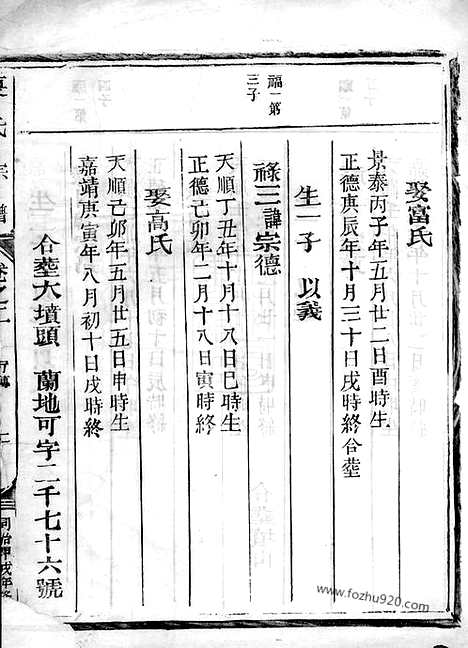 娶富氏
景泰丙子年五月廿二日酉時生
正德庚辰年十月三十日戌時終合塟
生一子 以義
福一第
三子
祿三諱宗德
天順丁丑年十月十八日巳時生
正德己卯年二月十八日寅時終
娶高氏
天順己卯年五月廿五日申時生
嘉靖庚寅年八月初十日戌時終
合塟大墳頭 蘭地可字二千七十六號
氏宗譜
卷之
行傳
同治甲戌年
www.fozhu920.com